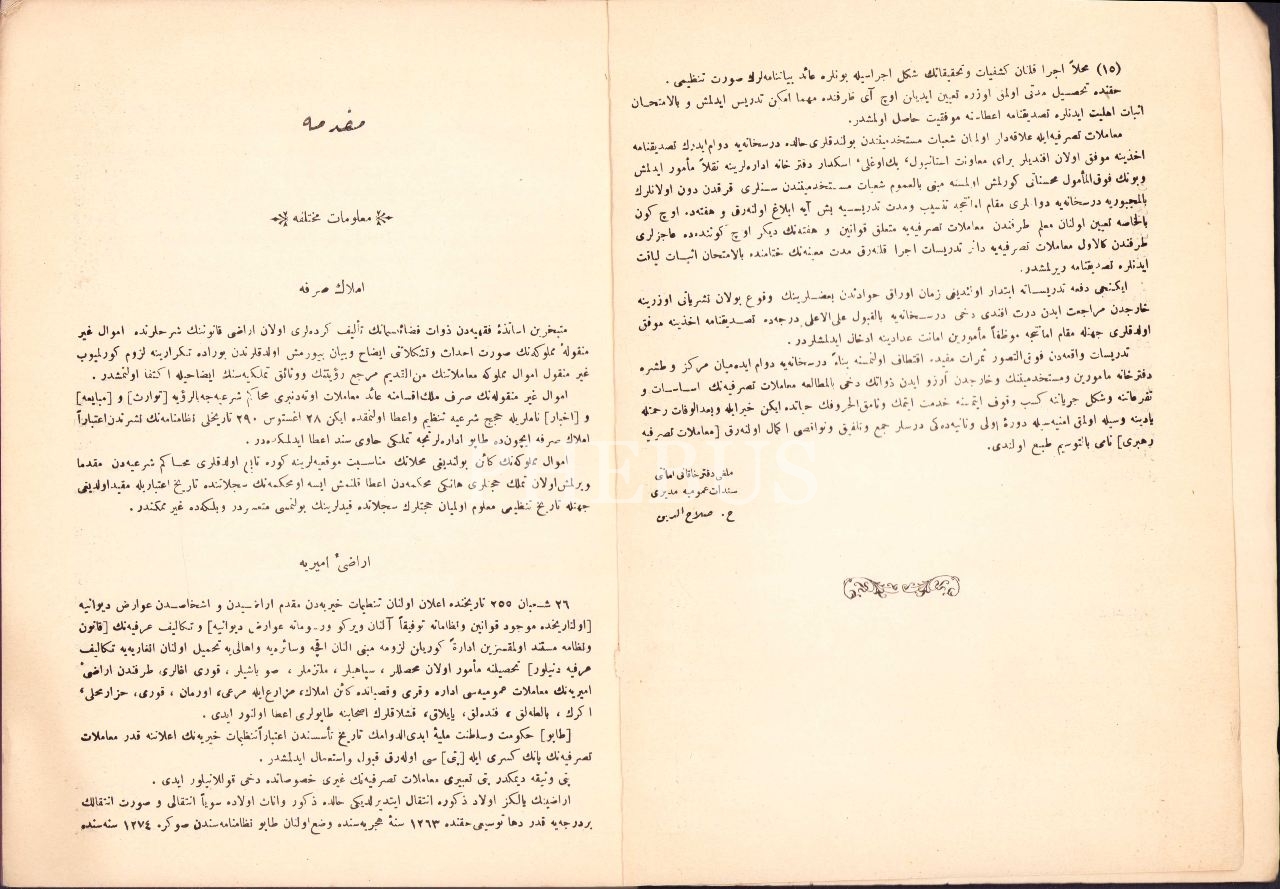 (١٥) محلاً اجرا قلنان كشفيات وتحقيقاتك شكل اجراسيله بونلره عائد بياننامه‌لرك صورت تنظيمى .
حقنده تحصيل مدتى اولمق اوزره تعيين ايديلن اوچ آى ظرفنده مهما امكن تدريس ايدلمش و بالامتحان
اثبات اهليت ايدنلره تصديقنامه اعطاسنه موفقيت حاصل اولمشدر.
معاملات تصرفيه‌ايله علاقه‌دار اولمان شعبات مستخدميندن بولندقلرى حالده درسخانه‌يه دوام ايدرك تصديقنامه
اخذينه موفق اولان افنديلر براى معاونت استانبول، بك‌اوغلى، اسكدار دفترخانه اداره‌لرينه نقلاً مأمور ايدلمش
وبونك فوق‌المأمول محسناتى كورلمش اولمسنه مبنى بالعموم شعبات مستخدميندن سنلرى قرقدن دون اولانلرك
بالمجبوريه درسخانه‌يه دواملرى مقام امانتجه تنسيب ومدت تدريسيه بش آيه ابلاغ اولنه‌رق و هفته‌ده اوچ كون
بالخاصه تعيين اولنان معلم طرفندن معاملات تصرفيه‌يه متعلق قوانين و هفته‌نك ديكر اوچ كوننده‌ده عاجزلرى
طرفندن كالاول معاملات تصرفيه‌يه دائر تدريسات اجرا قلنه‌رق مدت معينه‌نك ختامنده بالامتحان اثبات لياقت
ايدنلره تصديقنامه ويرلمشدر.
ايكنجى دفعه تدريساته ابتدار اولنديغى زمان اوراق حوادثدن بعضلرينك وقوع بولان نشرياتى اوزرينه
خارجدن مراجعت ايدن درت افندى دخى درسخانه‌يه بالقبول على‌الاعلى درجه‌ده تصديقنامه اخذينه موفق
اولدقلرى جهتله مقام امانتجه موظفاً مأمورين امانت عدادينه ادخال ايدلمشلردر .
تدريسات واقعه‌دن فوق‌التصور ثمرات مفيده اقتطاف اولنمسنه بناءً درسخانه‌يه دوام ايده‌ميان مركز و طشره
دفترخانه مأمورين ومستخدميننك وخارجدن آرزو ايدن ذواتك دخى بالمطالعه معاملات تصرفيه‌نك اساسات و
تفرعاتنه وشكل جرياننه كسب وقوف ايتمسنه خدمت ايتمك ونامق‌الحروفك حياتده ايكن خيرايله وبعدالوفات رحمتله
يادينه وسيله اولمق امنيه‌سيله دورۀ اولى وثانيه‌ده‌كى درسلر جمع وتلفيق ونواقصى اكمال اولنه‌رق [معاملات تصرفيه
رهبرى] نامى بالتوسيم طبع اولندى.
ملغى دفتر خاقانى امانتى
سندات عموميه مديرى
ح. صلاح الدين
مقدمه
معلومات مختلفه
املاك صرفه
متبحرين اساتذۀ فقهيه‌دن ذوات فضائلسماتك تأليف كرده‌لرى اولان اراضى قانوننك شرحلرنده اموال غير
منقولۀ مملوكه‌نك صورت احداث وتشكلاتى ايضاح وبيان بيورمش اولدقلرندن بوراده تكرارينه لزوم كورلميوب
غير منقول اموال مملوكه معاملاتنك من‌القديم مرجع رؤيتنك ووثائق تملكيه‌سنك ايضاحيله اكتفا اولنمشدر .
اموال غير منقوله‌نك صرف ملك اقسامنه عائد معاملات اوته‌دنبرى محاكم شرعيه‌جه بالرؤيه [توارث] و [مبايعه]
و [اخبار] ناملريله حجج شرعيه تنظيم واعطا اولنمقده ايكن ٢٨ اغستوس ٢٩٠ تاريخلى نظامنامه‌نك نشرندن اعتباراً
املاك صرفه ايچون‌ده طاپو اداره‌لرنجه تملكى حاوى سند اعطا ايدلمكده‌در .
اموال مملوكه‌نك كائن بولنديغى محلاتك مناسبت موقعيه‌لرينه كوره تابع اولدقلرى محاكم شرعيه‌دن مقدما
ويرلمش اولان تملك حجتلرى هانكى محكمه‌دن اعطا قلنمش ايسه اومحكمه‌نك سجلاتنده تاريخ اعتباريله مقيد اولديغى
جهتله تاريخ تنظيمى معلوم اولميان حجتلرك سجلاتده قيدلرينك بولنمسى متعسردر وبلكه‌ده غير ممكندر .
اراضئ اميريه
٢٦ شعبان ٢٥٥ تاريخنده اعلان اولنان تنظيمات خيريه‌دن مقدم اراضيدن و اشخاصدن عوارض ديوانيه
[اولتاريخده موجود قوانين ونظاماته توفيقاً آلنان ويركو ورسوماته عوارض ديوانيه] و تكاليف عرفيه‌نك [قانون
ونظامه مستند اولمقسزين ادارةً كوريلن لزومه مبنى النان اقچه وسائره‌يه واهالى‌يه تحميل اولنان انغاريه‌يه تكاليف
عرفيه دنيلور] تحصيلنه مأمور اولان محصللر ، سپاهيلر ، ملتزملر ، صو باشيلر ، قورى اغالرى طرفندن اراضئ
اميريه‌نك معاملات عموميه‌سى اداره وقرى وقصباتده كائن املاك، مزارع‌ايله مرعى، اورمان ، قورى، حزارمحلى،
اكرك ، بالطه‌لق ، فنده‌لق، يايلاق، قشلاقلرك اصحابنه طاپولرى اعطا اولنور ايدى .
[طاپو] حكومت وسلطنت مليۀ ابدى‌الدوامك تاريخ تأسسندن اعتباراً تنظيمات خيريه‌نك اعلاننه قدر معاملات
تصرفيه‌نك يانك كسرى ايله [تپى] سى اوله‌رق قبول واستعمال ايدلمشدر .
تپى وثيقه ديمكدر تپى تعبيرى معاملات تصرفيه‌نك غيرى خصوصاتده دخى قوللانيلور ايدى .
اراضينك يالكز اولاد ذكوره انتقال ايتديرلديكى حالده ذكور واناث اولاده سوياً انتقالى و صورت انتقالك
بردرجه‌يه قدر دها توسيعى حقنده ١٢٦٣ سنۀ هجريه‌سنده وضع اولنان طاپو نظامنامه‌سندن صوكره ١٢٧٤ سنه‌سنده